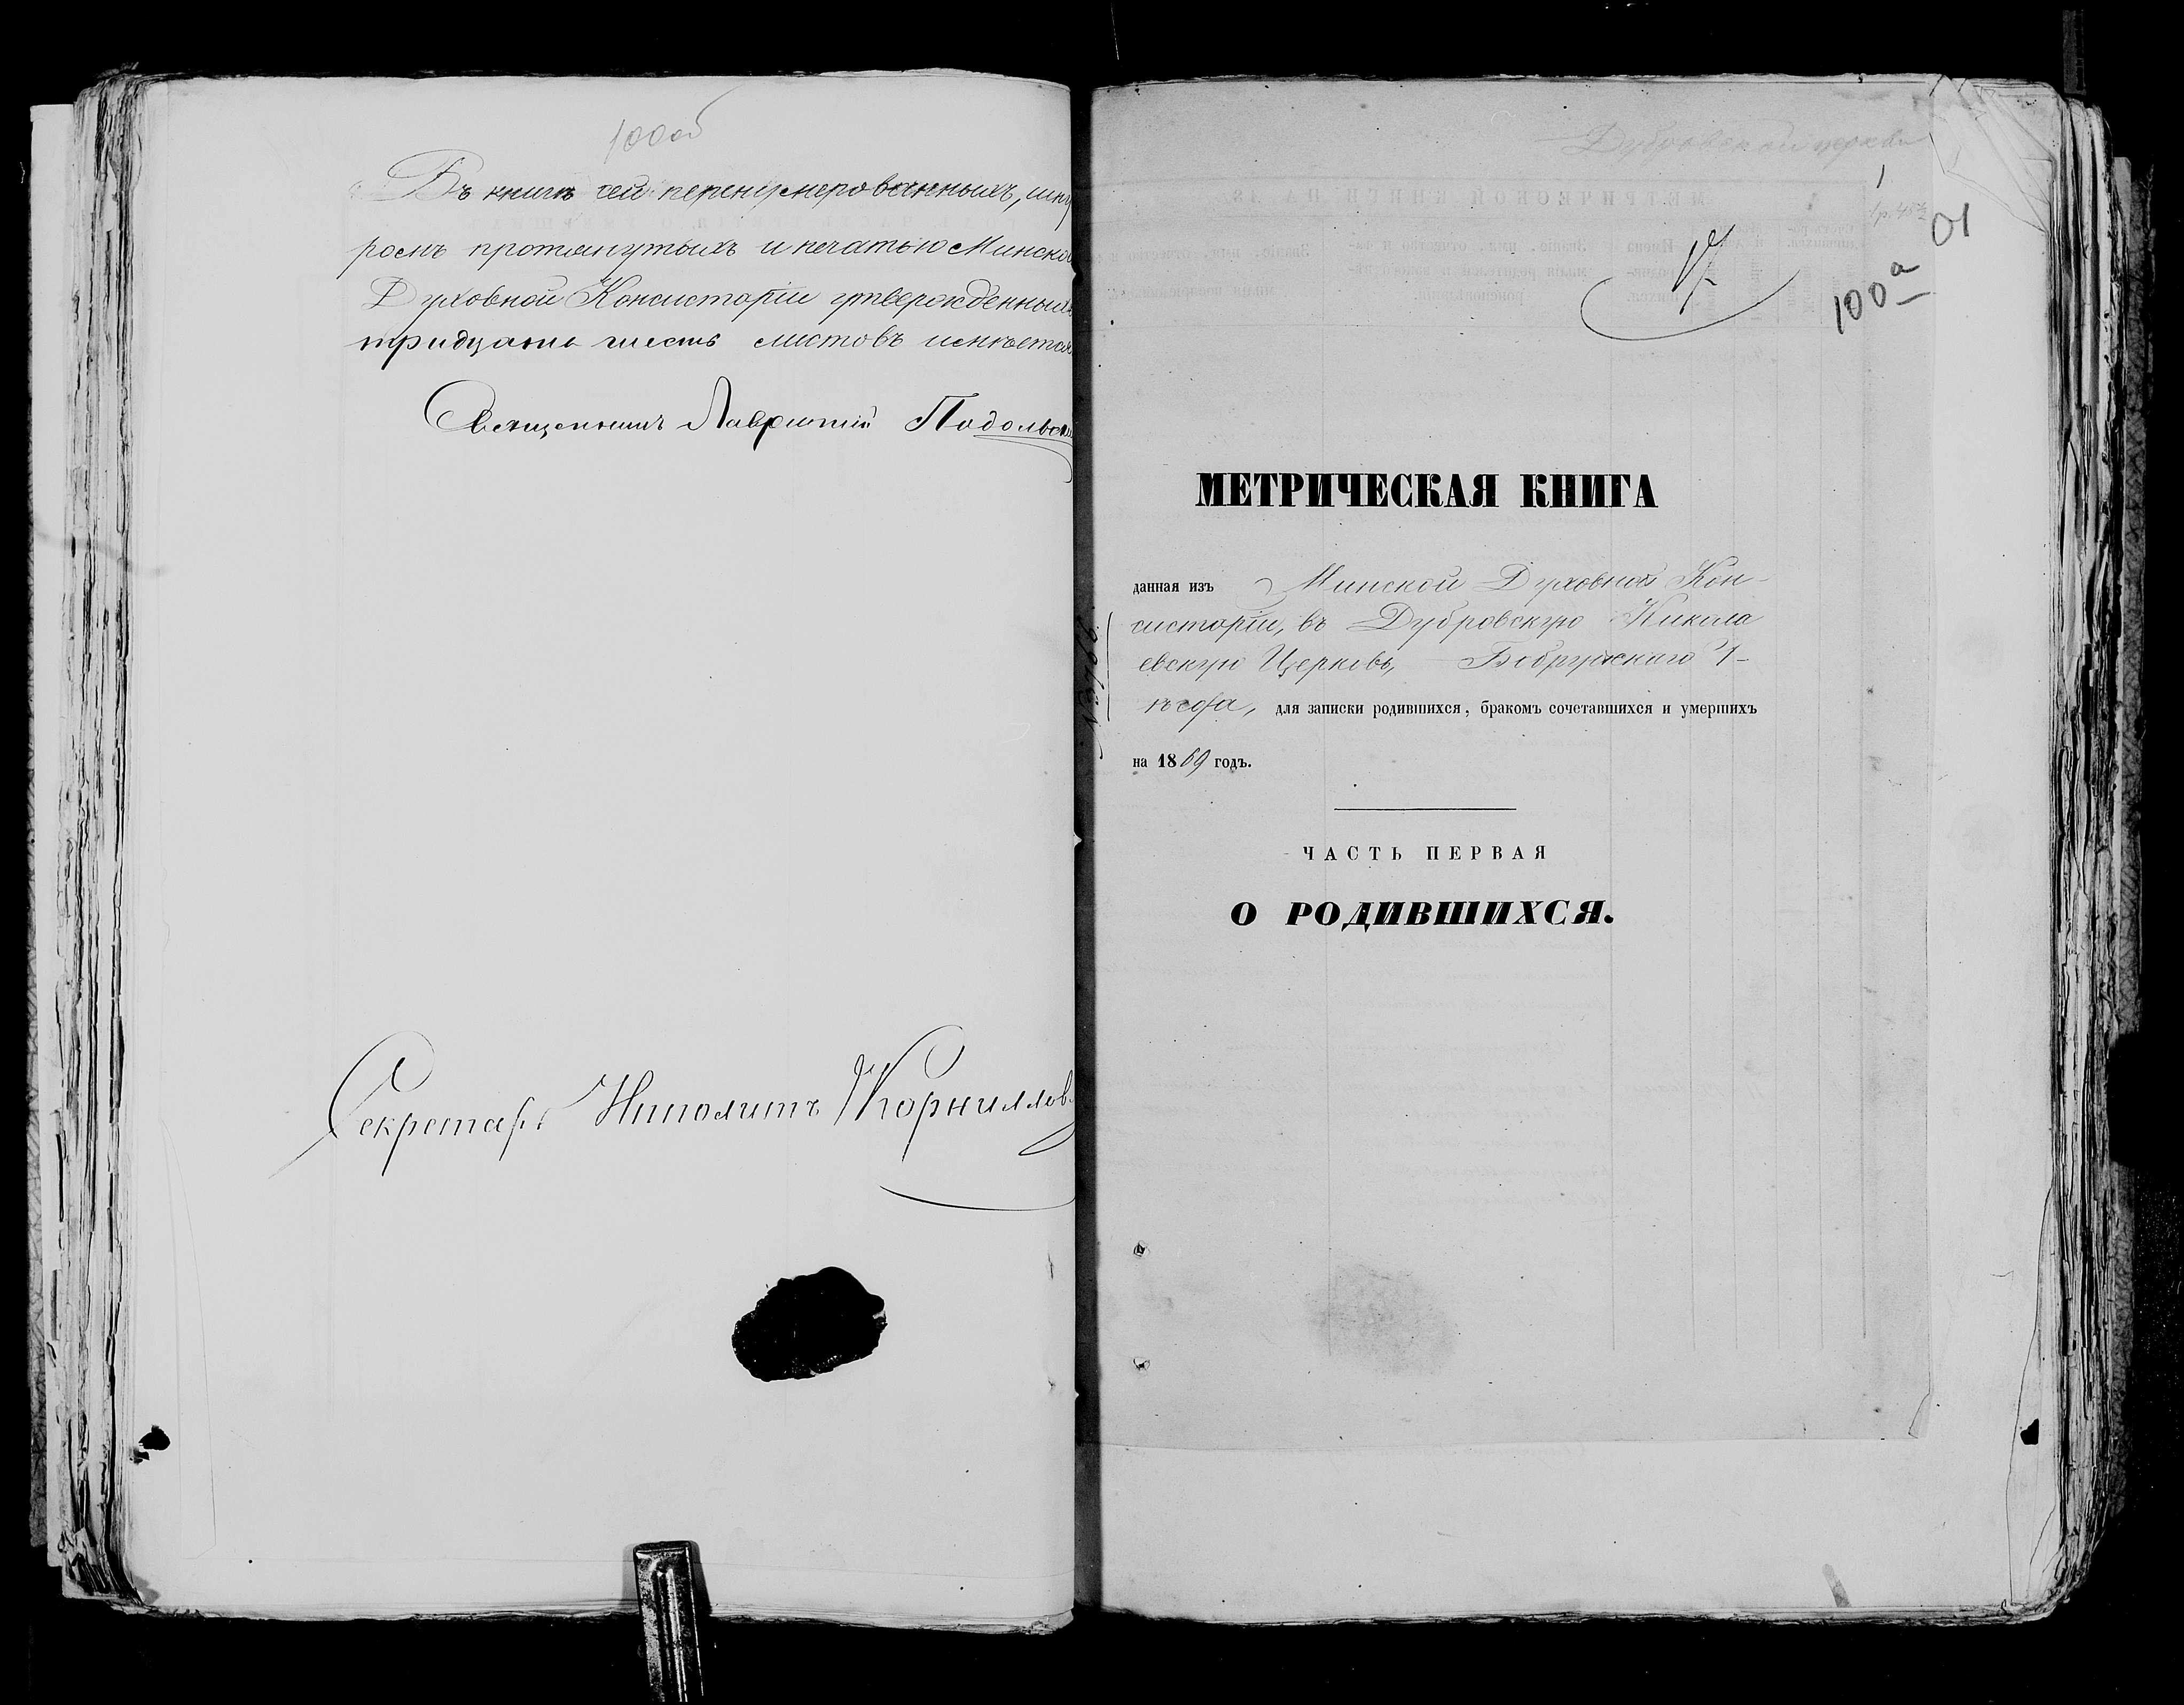 100об
Въ книгѣ сей перенумерованныхъ, шну
ромъ протянутыхъ и печатью Минской
Духовной Консисторіи утвержденныхъ
тридцать шесть листовъ имѣется
Священникъ Лаврентій Подольскій
Секретарь Ипполитъ Корнилов
Дубровской церкви
1
01
100а
МЕТРИЧЕСКАЯ КНИГА
данная изъ Минской Духовной Кон-
систоріи, въ Дубровскую Никола
евскую Церковь, Бобруйскаго У-
ѣзда, для записки родившихся, бракомъ сочетавшихся и умершихъ
на 1869 годъ.
ЧАСТЬ ПЕРВАЯ
О РОДИВШИХСЯ.